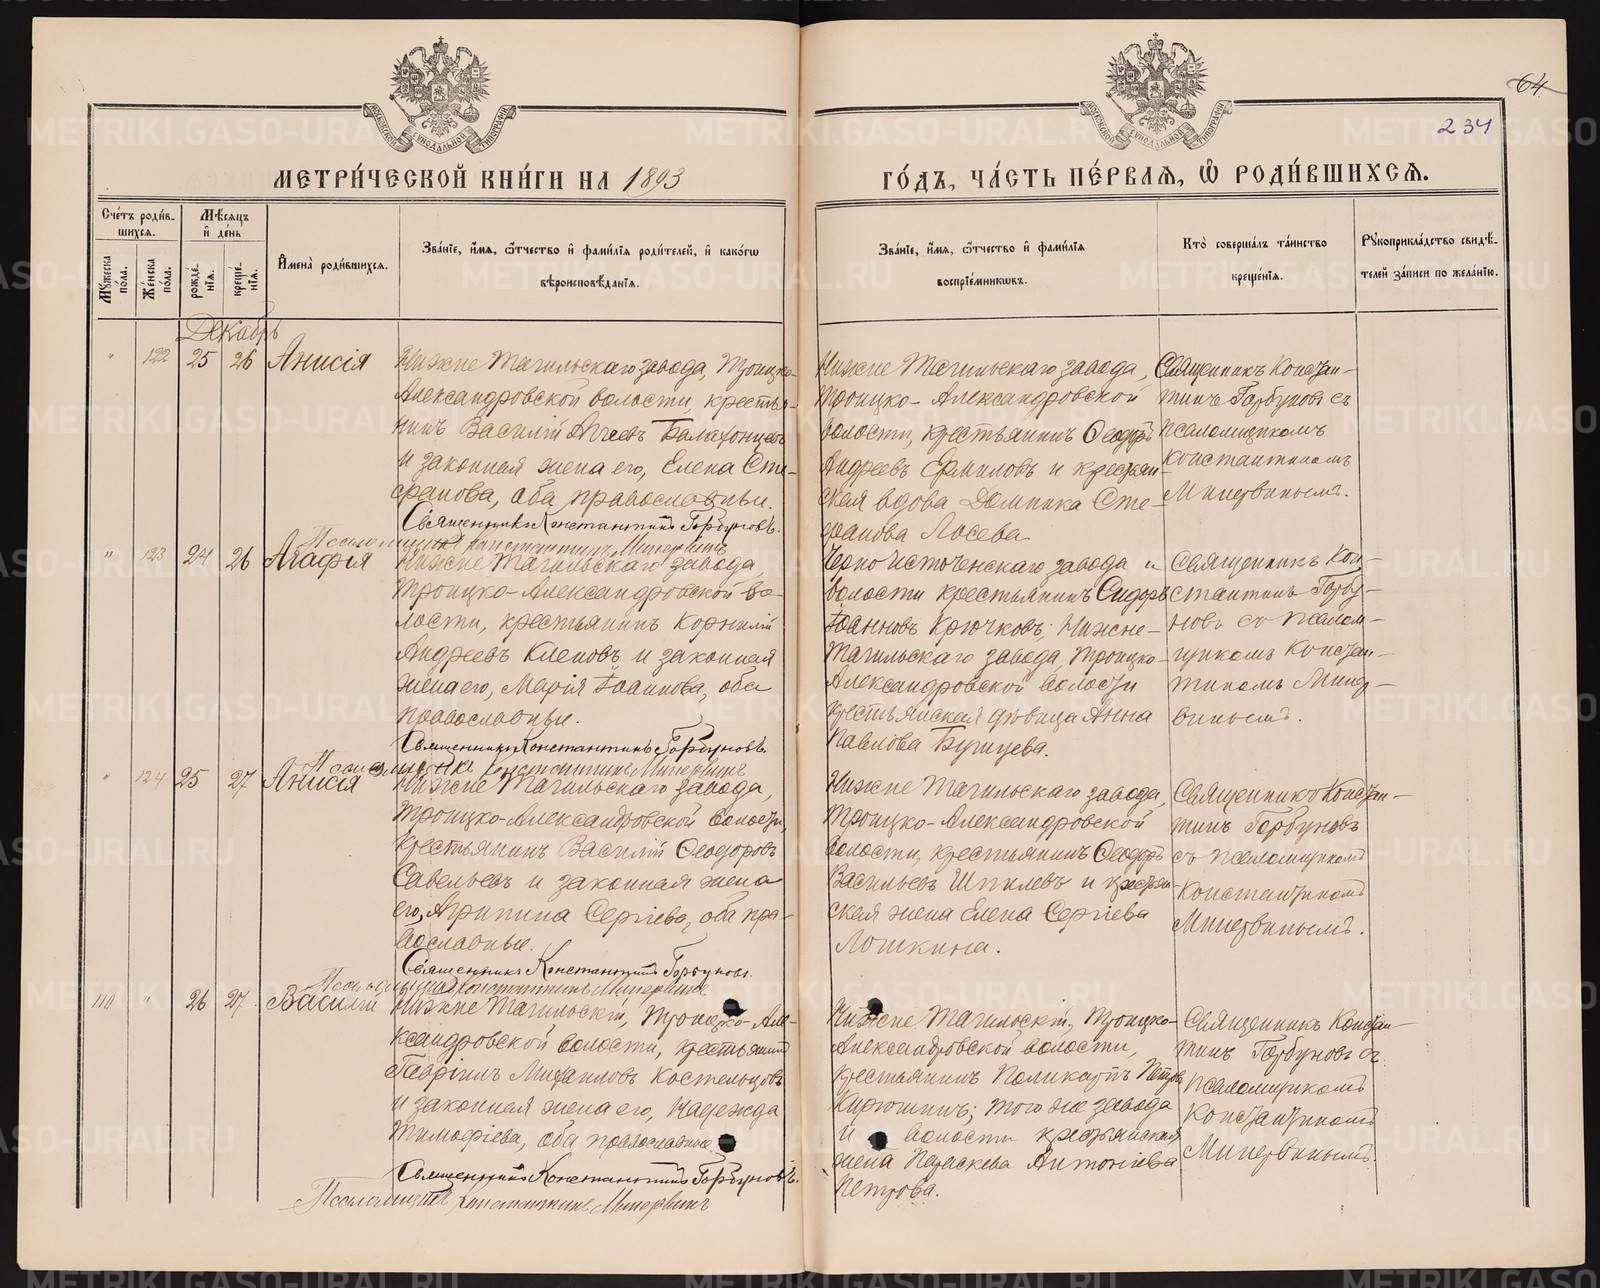 64
234
МЕТРИ́ЧЕСКОЙ КНИ́ГИ НА 1893
ГО́ДЪ, ЧА́СТЬ ПЕ́РВАѦ, Ѽ РОДИ́ВШИХСѦ.
Сче́тъ роди́в-
шихсѧ.
Мѣ́сѧцъ
и де́нь
Му́жеска пола.
Же́нска пола.
рожде́-
нїѧ.
креще́-
нїѧ.
Имена̀ роди́вшихсѧ.
Зва́нїе, и́мѧ, ѻ́тчество и фами́лїѧ роди́телей, и како́гѡ
вѣроисповѣ́данїѧ.
Зва́нїе, и́мѧ, ѻ́тчество и фами́лїѧ
воспрїе́мникѡвъ.
Кто̀ соверша́лъ та́инство
креще́нїѧ.
Рꙋкоприкла́дство свидѣ́-
телей за́писи по жела́нїю.
Декабрь
" 122 25 26 Анисія
Нижне Тагильскаго завода, Троицко-
Александровской волости, крестья-
нинъ Василій Агѣевъ Балаконцевъ
и законная жена его, Елена Сте-
фанова, оба православные.
Священникъ Константинъ Горбуновъ.
Псаломщикъ Константинъ Минервинъ
Нижне Тагильскаго завода,
Троицко-Александровской
волости, крестьянинъ Ѳеодоръ
Андреевъ Ермиловъ и крестьян-
ская вдова Домника Сте-
фанова Лосева
Священникъ Констан-
тинъ Горбуновъ съ
псаломщикомъ
Константиномъ
Минервинымъ.
" 123 24 26 Агафія
Нижне Тагильскаго завода,
Троицко-Александровской во-
лости, крестьянинъ Корнилій
Андреевъ Клеповъ и законная
жена его, Марія Іоаннова, оба
православные.
Священникъ Константинъ Горбуновъ.
Псаломщикъ Константинъ Минервинъ
Черноисточенскаго завода и
волости крестьянинъ Сидоръ
Іоанновъ Крючковъ; Нижне-
Тагильскаго завода, Троицко-
Александровской волости
крестьянская дѣвица Анна
Павлова
Священникъ Кон-
стантинъ Горбу-
новъ съ псалом-
щикомъ Констан-
тиномъ Минер-
винымъ.
" 124 25 27 Анисія
Нижне Тагильскаго завода,
Троицко-Александровской волости,
крестьянинъ Василій Ѳеодоровъ
Савельевъ и законная жена
его, Агрипина Сергіева, оба пра-
вославные.
Священникъ Константинъ Горбуновъ.
Псаломщикъ Константинъ Минервинъ
Нижне Тагильскаго завода,
Троицко-Александровской
волости, крестьянинъ Ѳеодоръ
Васильевъ Шпилевъ и крестьян-
ская жена Елена Сергіева
Лошкина.
Священникъ Констан-
тинъ Горбуновъ
съ псаломщикомъ
Константиномъ
Минервинымъ.
110 " 26 27 Василій
Нижне Тагильскій, Троицко-Але-
ксандровской волости, крестьянинъ
Гавріилъ Михаиловъ Костельцовъ
и законная жена его, Надежда
Тимофіева, оба православные
Священникъ Константинъ Горбуновъ.
Псаломщикъ Константинъ Минервинъ
Нижне Тагильскій, Троицко-
Александровской волости,
крестьянинъ Поликарпъ Петровъ
Кирюшинъ; того же завода
и волости крестьянская
жена Параскева Антоніева
Петрова.
Священникъ Констан-
тинъ Горбуновъ съ
псаломщикомъ
Константиномъ
Минервинымъ.
METRIKI.GASO-URAL.RU